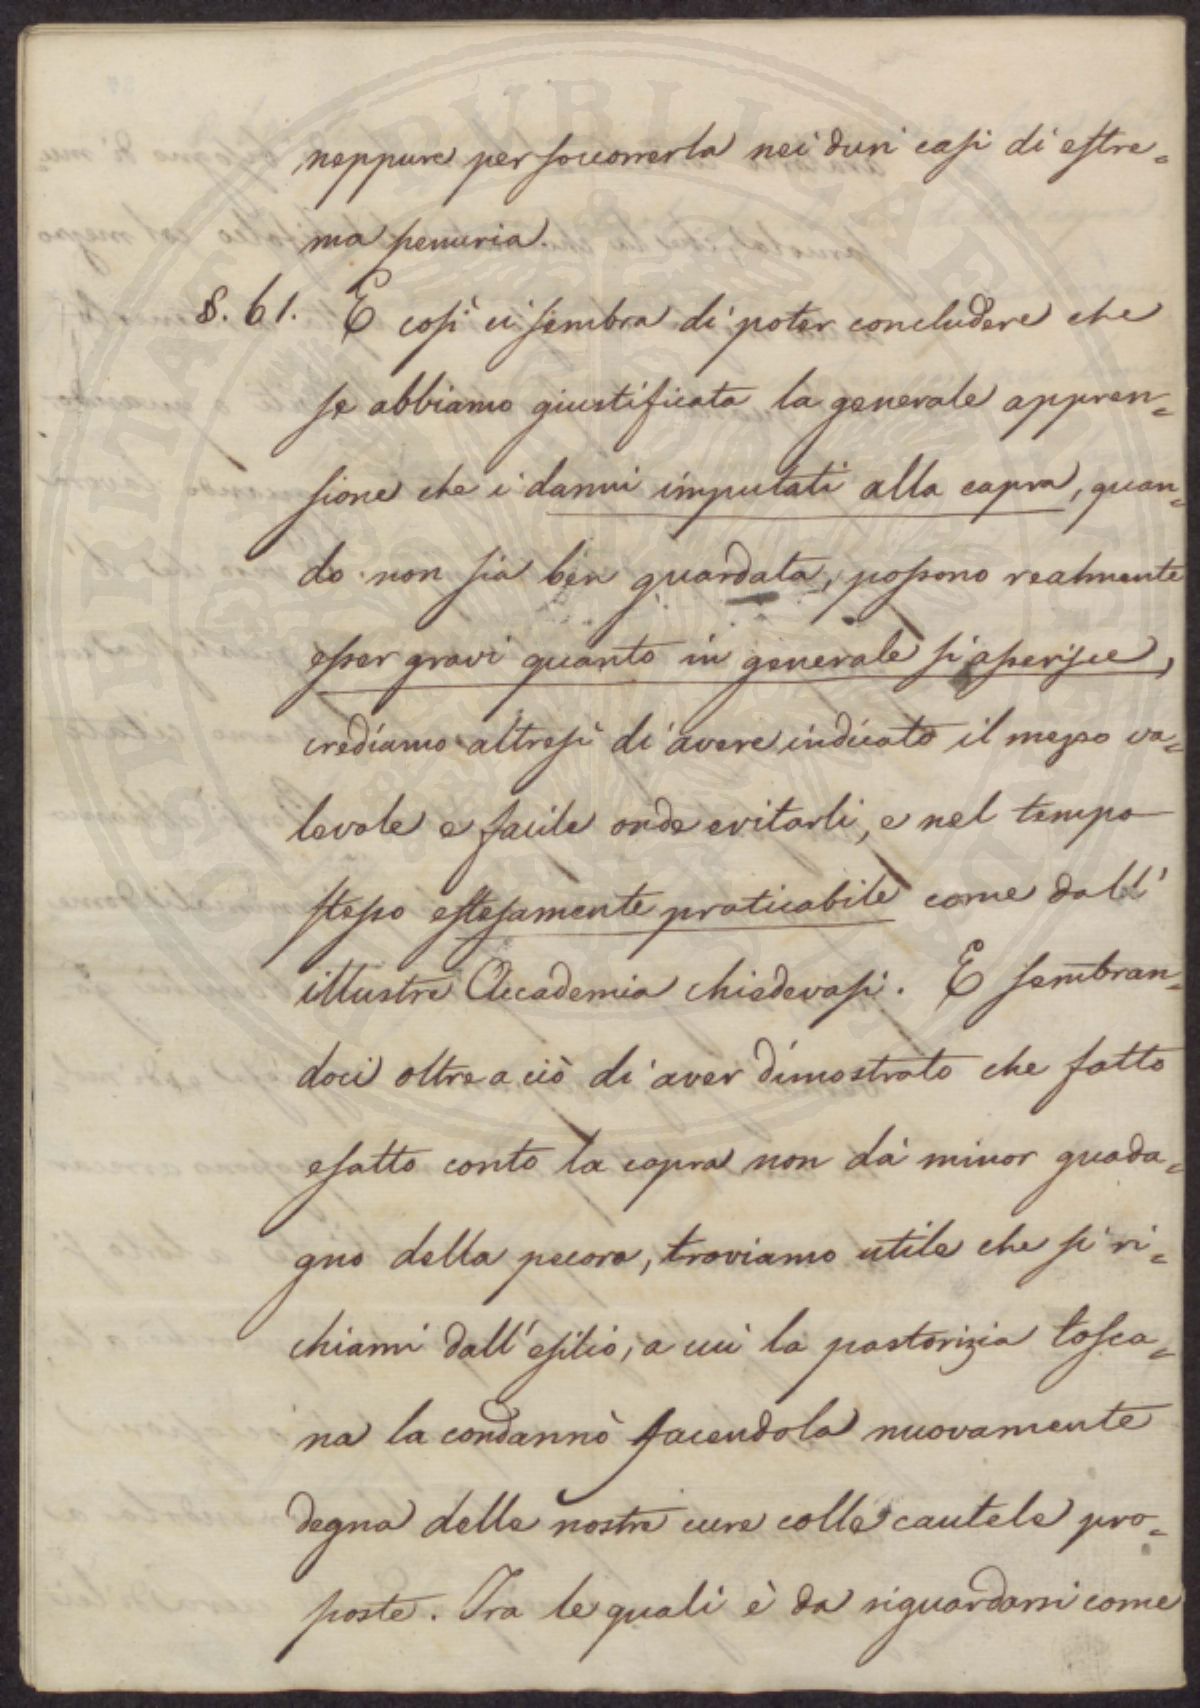 neppure per soccorrerla nei duri casi di estre=
ma penuria.
§. 61. E così ci sembra di poter concludere che
se abbiamo giustificata la generale appren=
sione che i danni imputati alla capra, quan=
do non sia ben guardata, possono realmente
esser gravi quanto in generale si asserisce,
crediamo altresì di avere indicato il mezzo va=
levole e facile onde evitarli, e nel tempo
stesso estesamente praticabile come dall'
illustre Accademia chiedevasi. E sembran=
doci oltre a ciò di aver dimostrato che fatto
esatto conto la capra non dà minor guada=
gno della pecora, troviamo utile che si ri=
chiami dall'esilio, a cui la pastorizia tosca=
na la condannò facendola nuovamente
degna delle nostre cure colle cautele pro=
poste. Tra le quali è da riguardarsi come